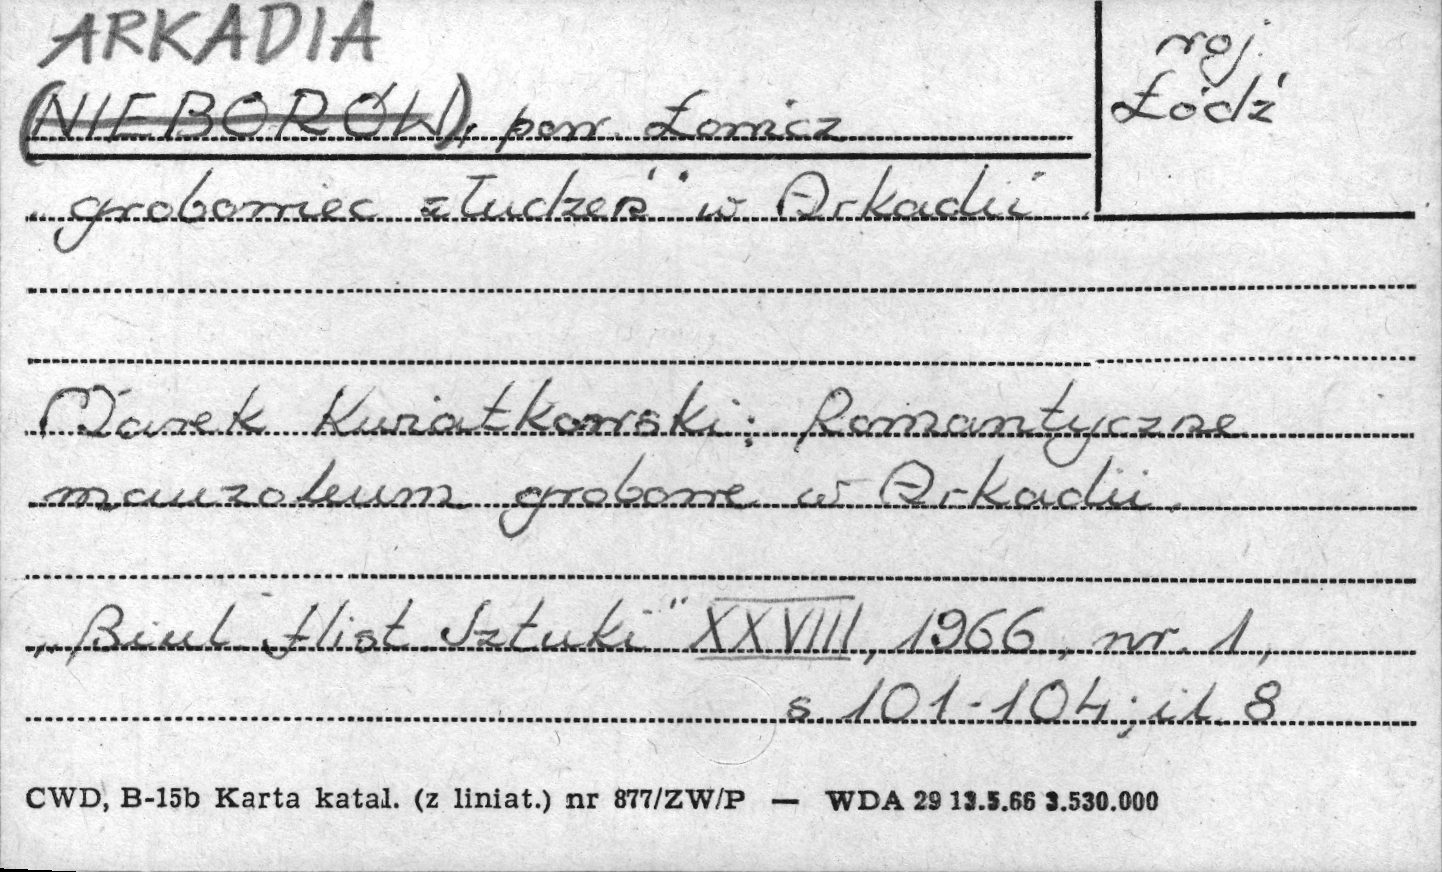 ARKADIA
(NIEBORÓW), pow. Łowicz
woj.
Łódź
„grobowiec złudzeń" w Arkadii
Marek Kwiatkowski: Romantyczne
mauzoleum grobowe w Arkadii.
„Biul. Hist. Sztuki" XXVIII, 1966, nr. 1,
s. 101-104; il. 8
CWD, B-15b Karta katal. (z liniat.) nr 877/ZW/P — WDA 29 13.5.66 3.530.000